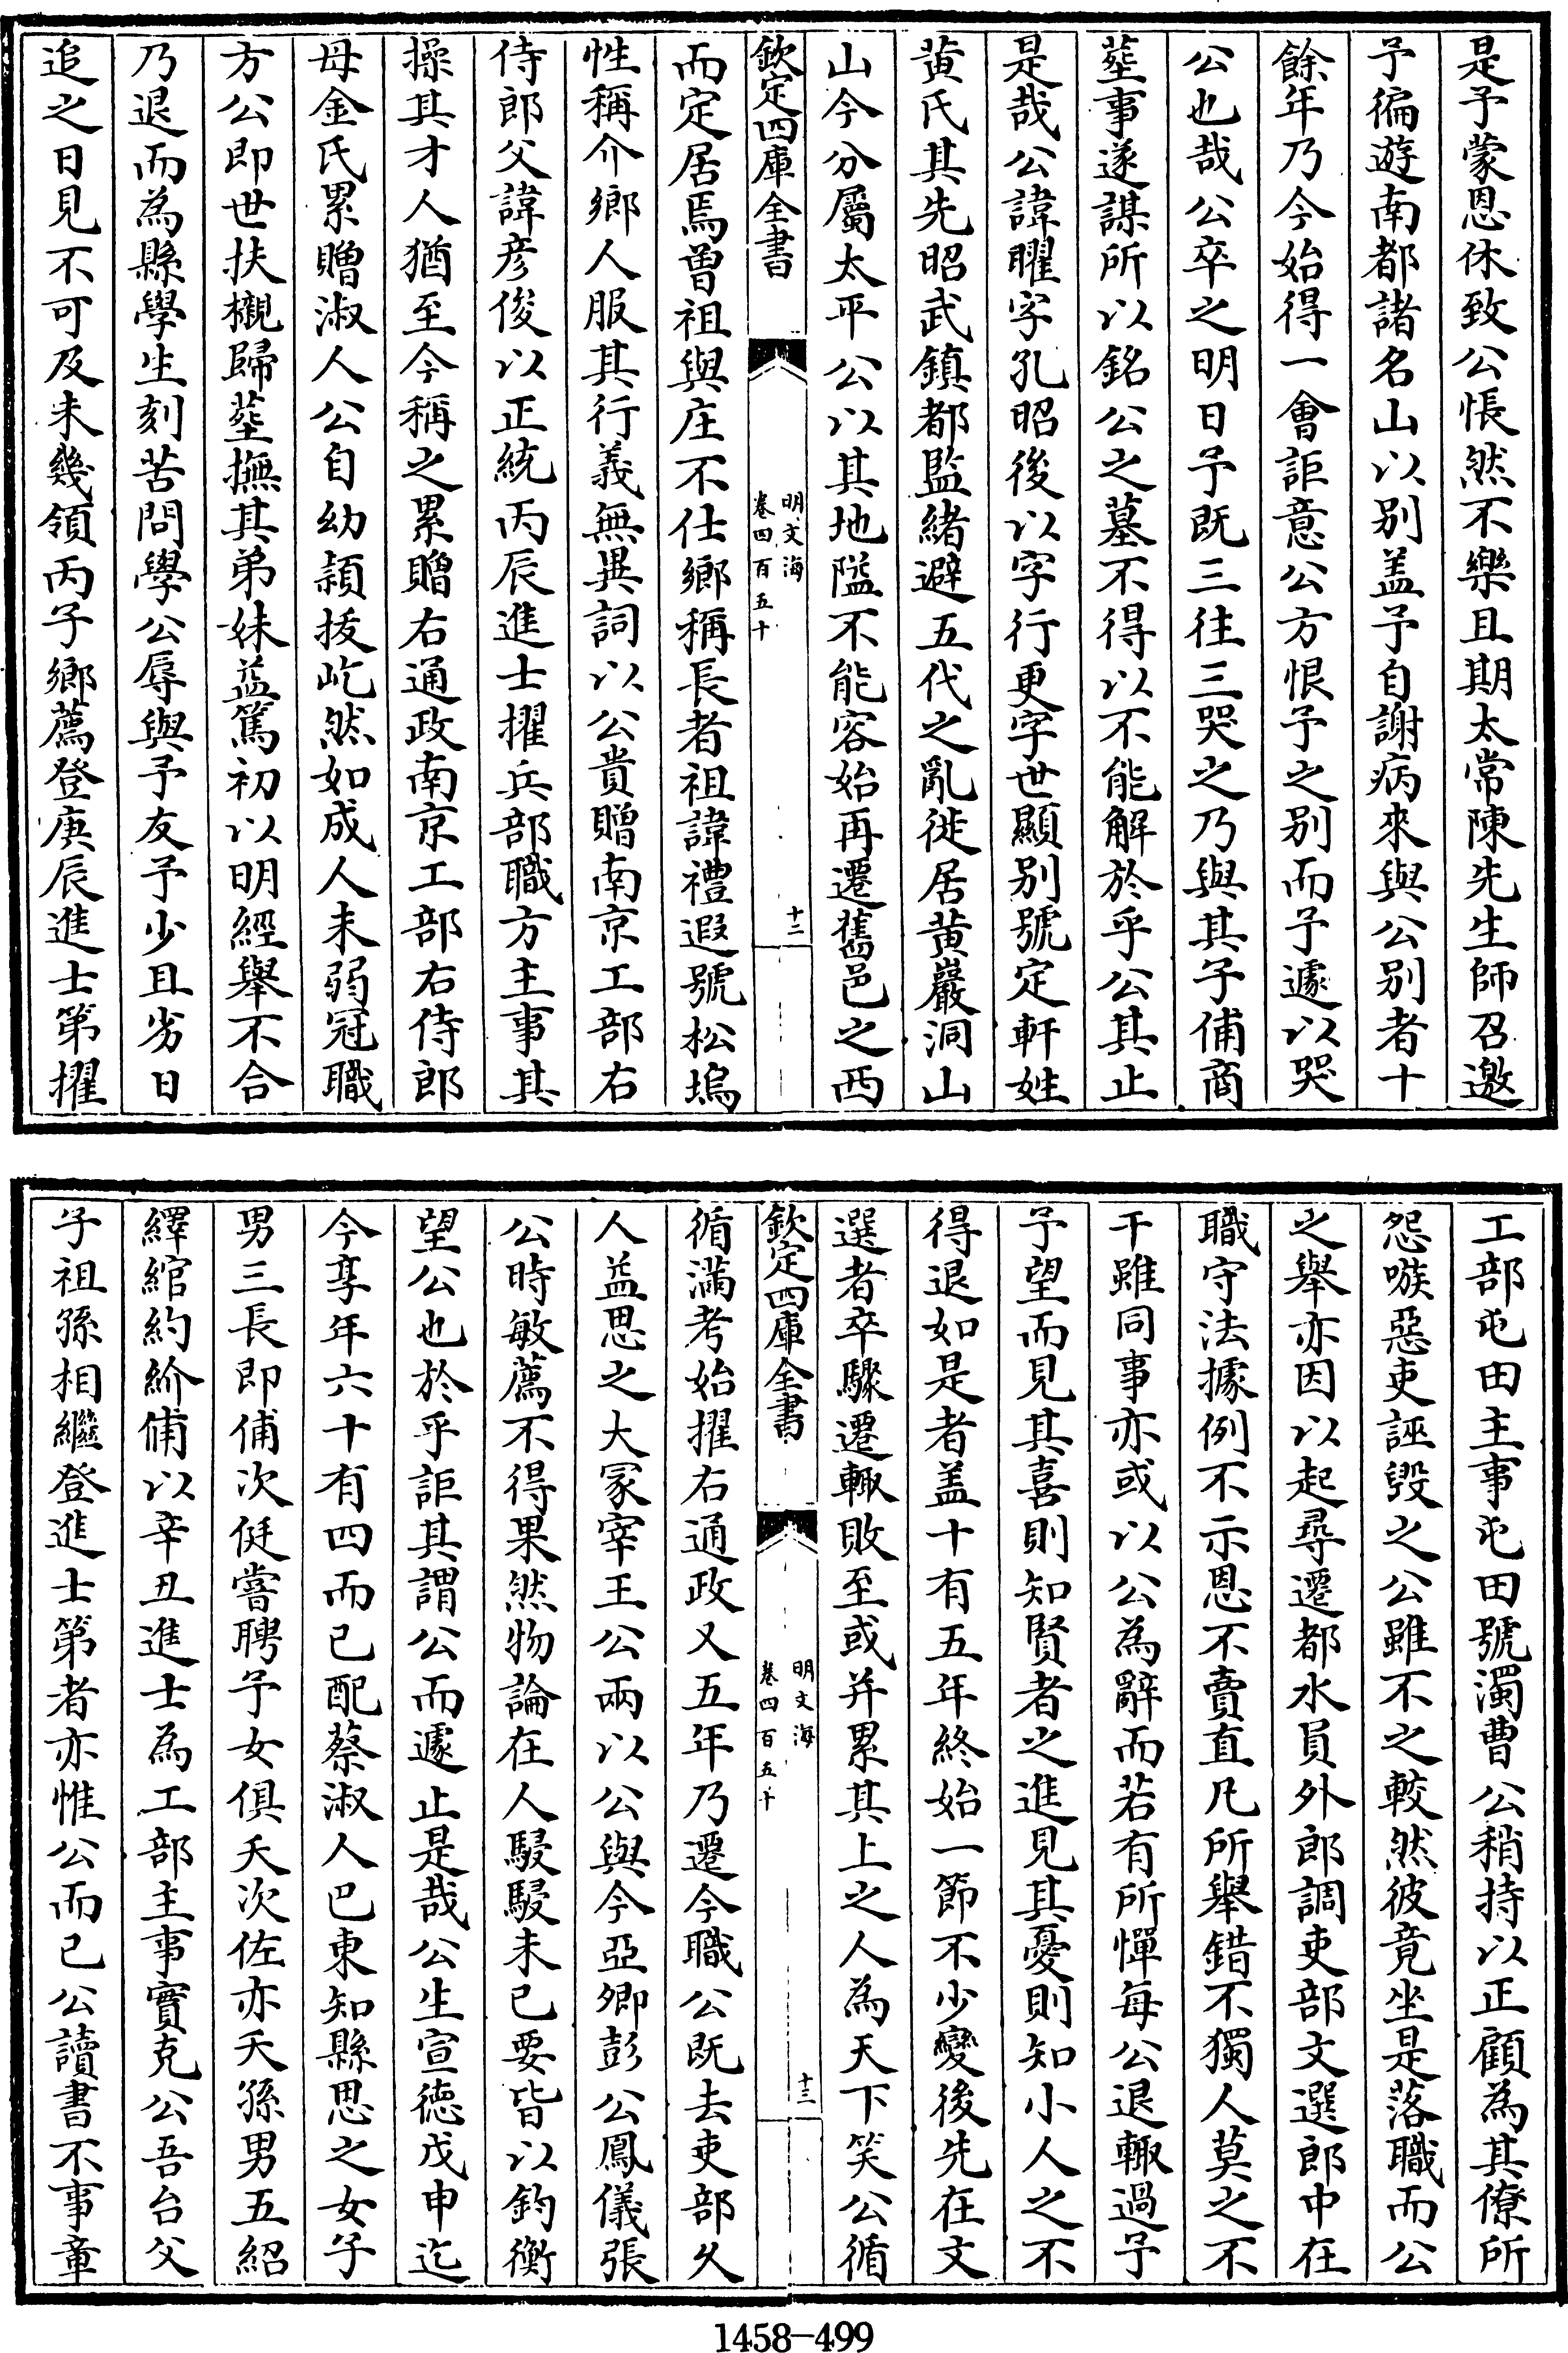 是予蒙恩休致公悵然不樂且期太常陳先生師召邀
予徧遊南都諸名山以别盖予自謝病來與公别者十
餘年乃今始得一會詎意公方恨予之别而予遽以哭
公也哉公卒之明日予既三往三哭之乃與其子俌商
塟事遂謀所以銘公之墓不得以不能解於乎公其止
是哉公諱曜字孔昭後以字行更字世顯别號定軒姓
黄氏其先昭武鎮都監緒避五代之亂徙居黄巖洞山
山今分屬太平公以其地隘不能容始再遷舊邑之西
欽定四庫全書
明文海
卷四百五十
十二
而定居焉曾祖與庄不仕鄉稱長者祖諱禮遐號松塢
性稱介鄉人服其行義無異詞以公貴贈南京工部右
侍郎父諱彦俊以正統丙辰進士擢兵部職方主事其
操其才人猶至今稱之累贈右通政南京工部右侍郎
母金氏累贈淑人公自幼頴拔屹然如成人未弱冠職
方公即世扶櫬歸塟撫其弟妹益篤初以明經舉不合
乃退而為縣學生刻苦問學公辱與予友予少且劣日
追之日見不可及未幾領丙子鄉薦登庚辰進士第擢
工部屯田主事屯田號濁曹公稍持以正顧為其僚所
怨嗾惡吏誣毁之公雖不之較然彼竟坐是落職而公
之舉亦因以起尋遷都水員外郎調吏部文選郎中在
職守法據例不示恩不賣直凡所舉錯不獨人莫之不
干雖同事亦或以公為辭而若有所憚每公退輙過予
予望而見其喜則知賢者之進見其憂則知小人之不
得退如是者盖十有五年終始一節不少變後先在文
選者卒驟遷輙敗至或并累其上之人為天下笑公循
欽定四庫全書
明文海
卷四百五十
十三
循滿考始擢右通政又五年乃遷今職公既去吏部久
人益思之大冢宰王公兩以公與今亞卿彭公鳳儀張
公時敏薦不得果然物論在人駸駸未已要皆以鈞衡
望公也於乎詎其謂公而遽止是哉公生宣德戊申迄
今享年六十有四而已配蔡淑人巴東知縣思之女子
男三長即俌次侹嘗聘予女俱夭次佐亦夭孫男五紹
繹綰約紒俌以辛丑進士為工部主事實克公吾台父
子祖孫相繼登進士第者亦惟公而已公讀書不事章
1458-499